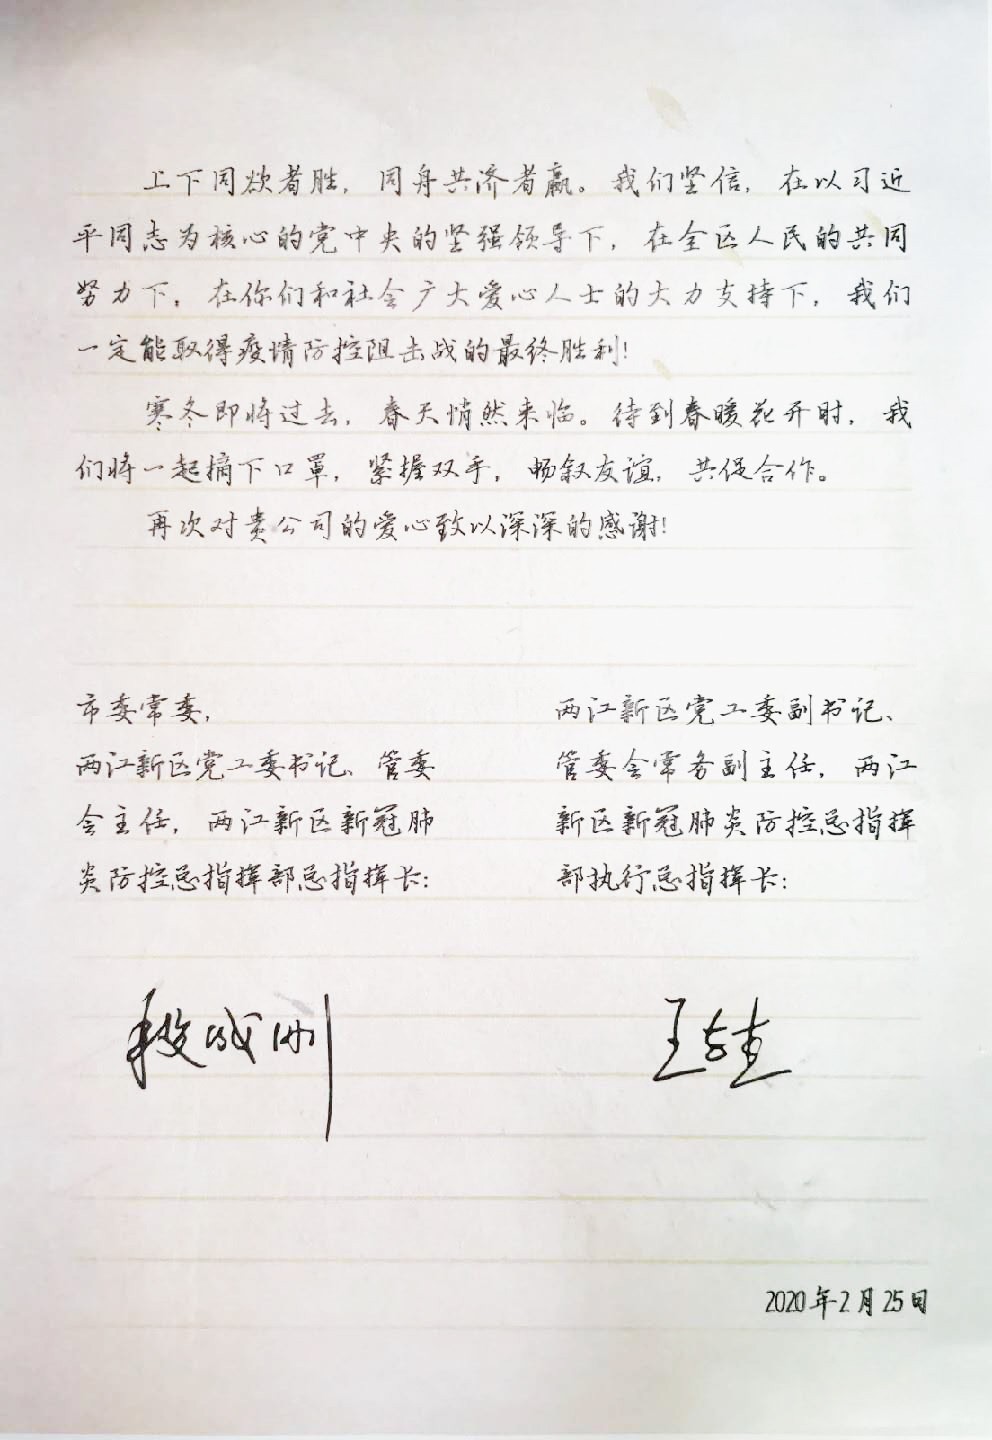 上下同欲者胜，同舟共济者赢。我们坚信，在以习近
平同志为核心的党中央的坚强领导下，在全区人民的共同
努力下，在你们和社会广大爱心人士的大力支持下，我们
一定能取得疫情防控阻击战的最终胜利！
寒冬即将过去，春天悄然来临。待到春暖花开时，我
们将一起摘下口罩，紧握双手，畅叙友谊，共促合作。
再次对贵公司的爱心致以深深的感谢！
市委常委，
两江新区党工委书记、管委
会主任，两江新区新冠肺
炎防控总指挥部总指挥长：
段成刚
两江新区党工委副书记、
管委会常务副主任，两江
新区新冠肺炎防控总指挥
部执行总指挥长：
王志杰
2020年2月25日